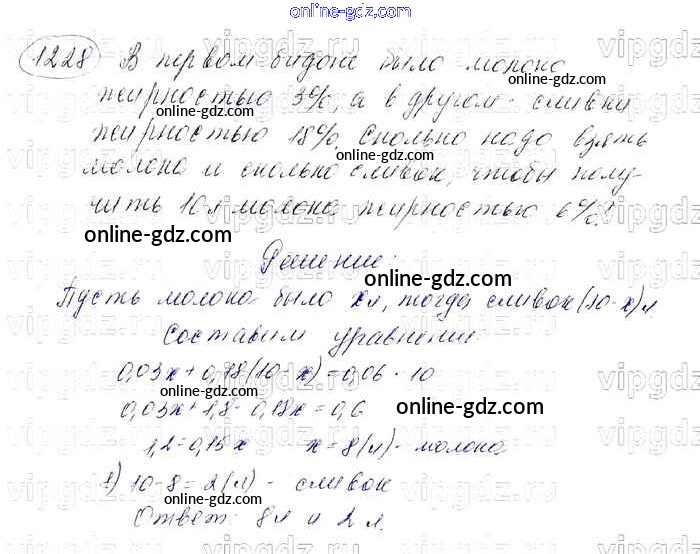 online-gdz.com
1228 В первом бидоне было молоко
online-gdz.com
жирностью 3%, а в другом - сливки
online-gdz.com
жирностью 18%. Сколько надо взять
online-gdz.com
молока и сколько сливок, чтобы полу-
чить 10 л молока жирностью 6%?
online-gdz.com
online-gdz.com
Решение:
online-gdz.com
Пусть молока было x л, тогда сливок (10-x) л.
online-gdz.com
Составим уравнение:
0,03x + 0,18(10-x) = 0,06 · 10
online-gdz.com
0,03x + 1,8 - 0,18x = 0,6
online-gdz.com
1,2 = 0,15x x = 8(л) - молока
online-gdz.com
1) 10-8 = 2(л) - сливок
online-gdz.com
Ответ: 8 л и 2 л.
online-gdz.com